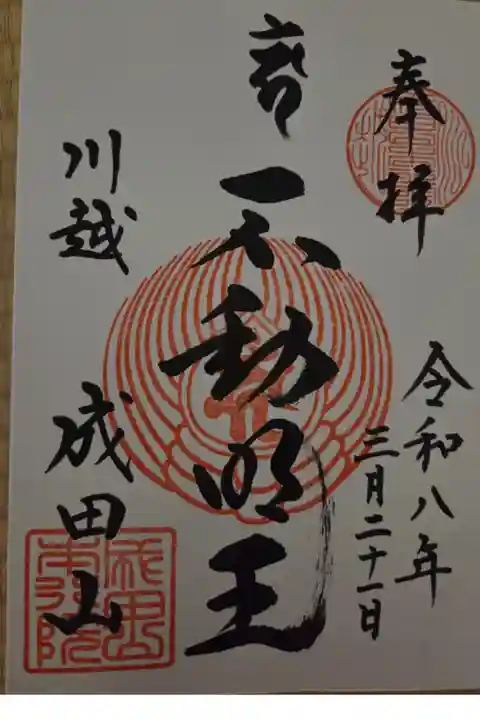 奉拝
令和八年
三月二十一日
不動明王
川越
成田山
成田山
本行院